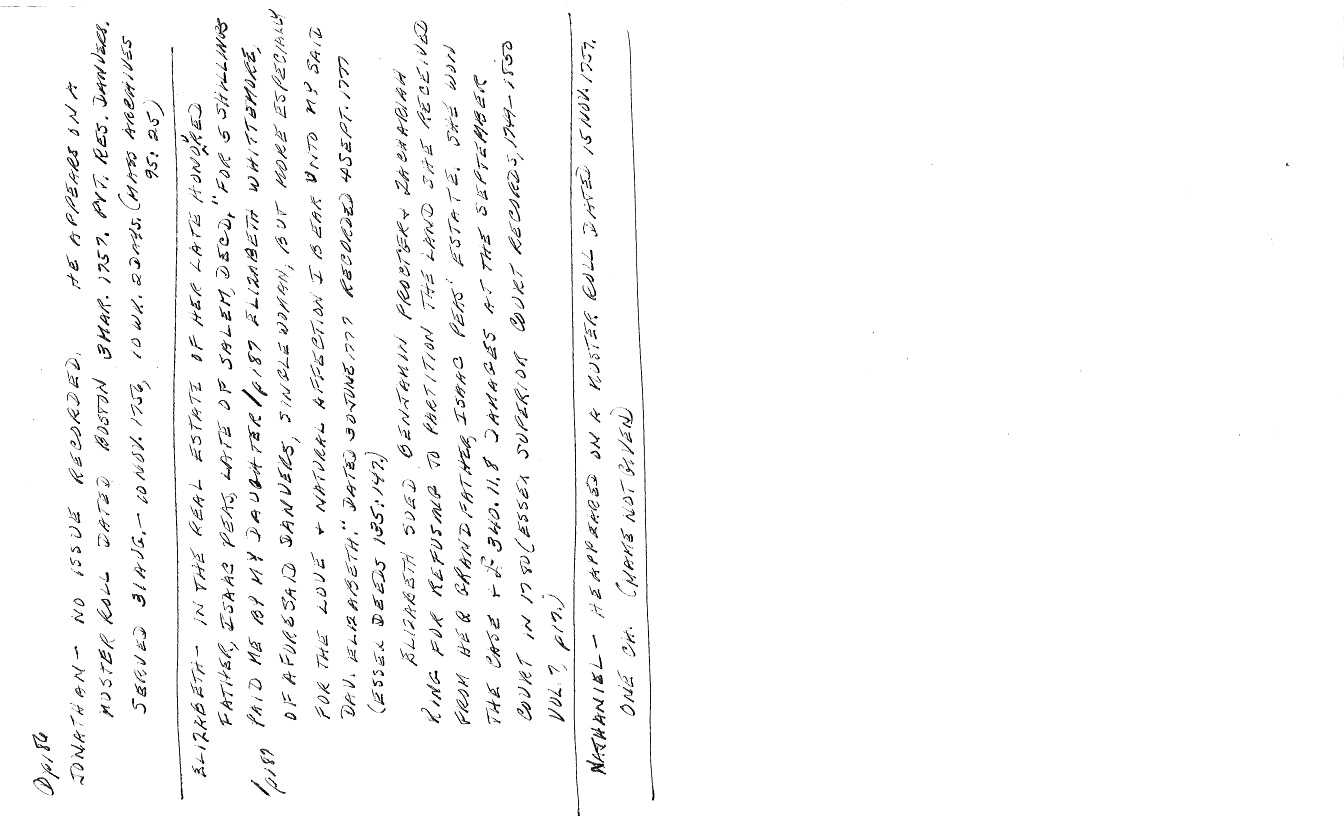 ① p186
JONATHAN - NO ISSUE RECORDED. HE APPEARS ON A
MUSTER ROLL DATED BOSTON 3 MAR. 1757. PVT. RES. DANVERS.
SERVED 31 AUG. - 10 NOV. 1756, 10 WK. 2 DAYS. (MASS ARCHIVES
95:25)
ELIZABETH - IN THE REAL ESTATE OF HER LATE HONOURED
FATHER, ISAAC PEAS, LATE OF SALEM, DECD, "FOR 5 SHILLINGS
PAID ME BY MY DAUGHTER /p187 ELIZABETH WHITTEMORE,
/p187 OF AFORESAID DANVERS, SINGLEWOMAN, BUT MORE ESPECIALLY
FOR THE LOVE + NATURAL AFFECTION I BEAR UNTO MY SAID
DAU. ELIZABETH." DATED 30 JUNE 1777 RECORDED 4 SEPT. 1777
(ESSEX DEEDS 135:147.)
ELIZABETH SUED BENJAMIN PROCTER + ZACHARIAH
KING FOR REFUSING TO PARTITION THE LAND SHE RECEIVED
FROM HER GRANDFATHER, ISAAC PEAS' ESTATE. SHE WON
THE CASE + £340.11.8 DAMAGES AT THE SEPTEMBER
COURT IN 1780 (ESSEX SUPERIOR COURT RECORDS, 1749-1800
VOL. 7, p17.)
NATHANIEL - HE APPEARED ON A MUSTER ROLL DATED 15 NOV. 1757.
ONE CH. (NAME NOT GIVEN)